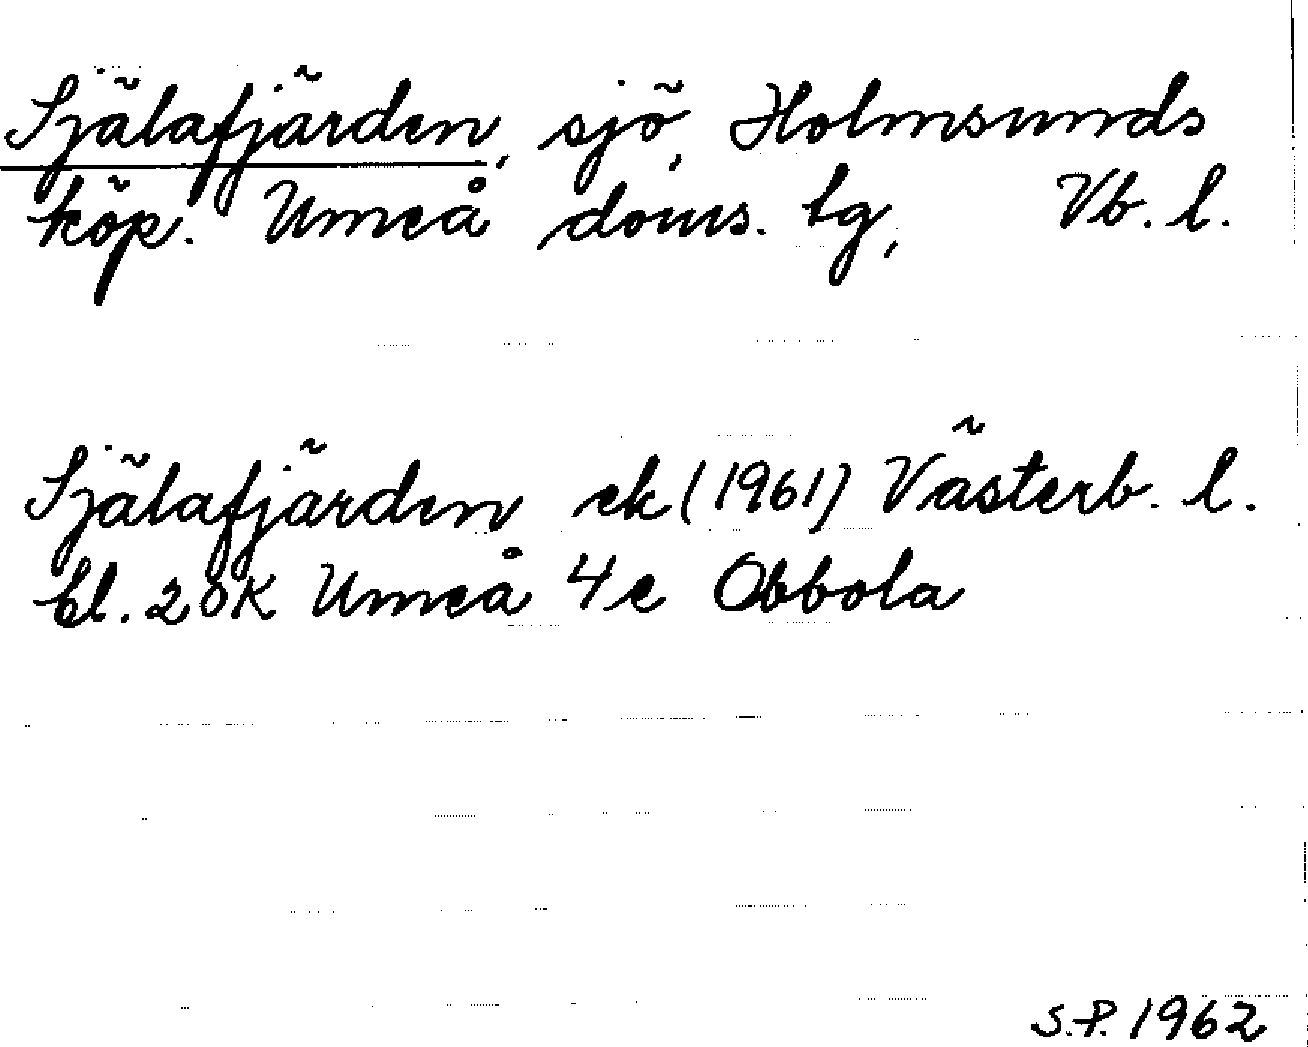 Själafjärden, sjö, Holmsunds
köp. Umeå doms. tg, Vb. l.
Själafjärden ek (1961) Västerb. l.
bl. 20K Umeå 4c Obbola
S.P. 1962